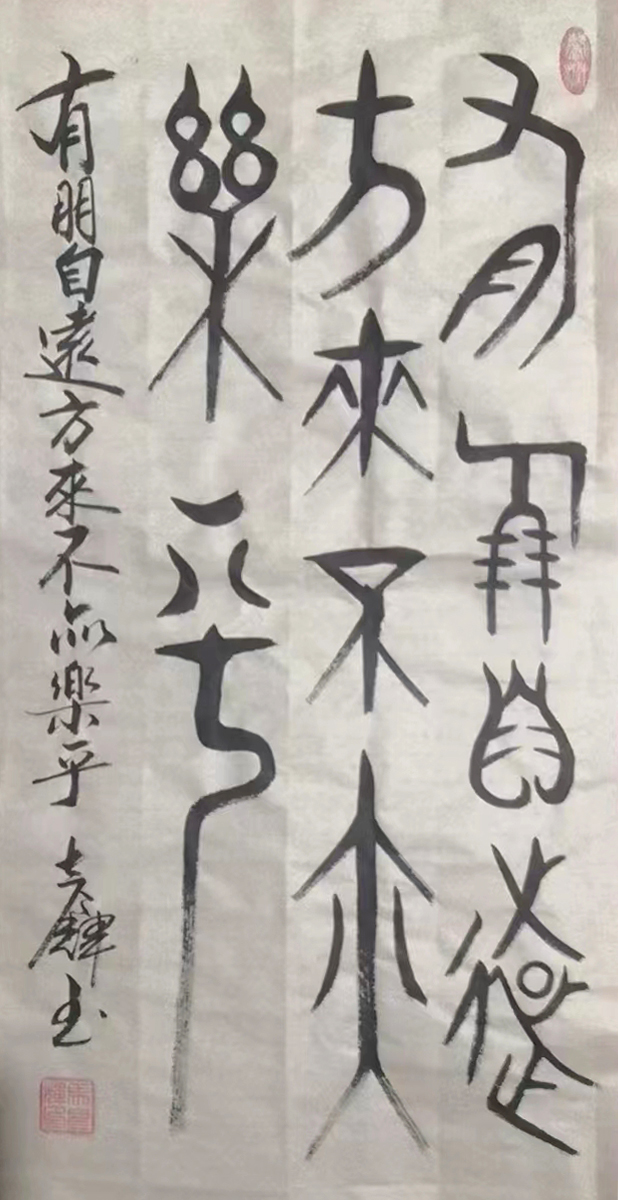 有朋自遠
方來不亦
樂乎
有朋自遠方來不亦樂乎 吉輝書